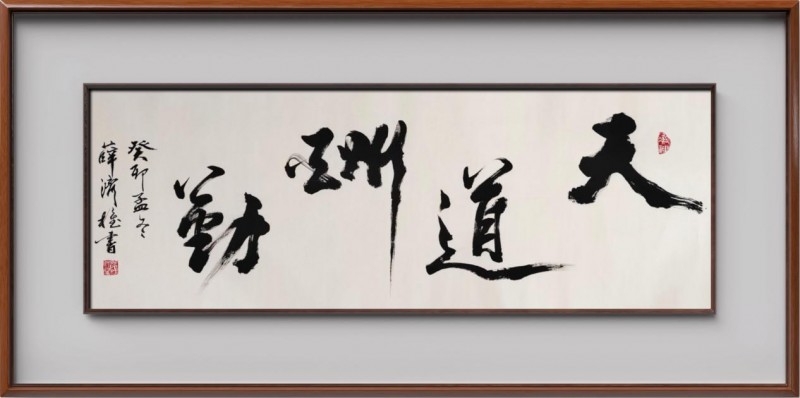 天道酬勤
癸卯孟冬
薛濟書